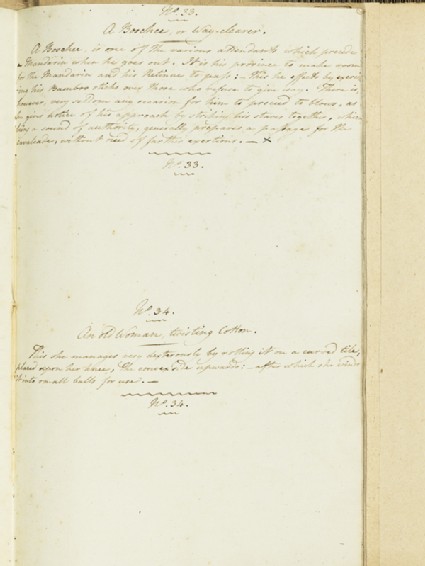 No. 33.
A Boochee, or Way-clearer.
A Boochee, is one of the various attendants which precede
a Mandarin when he goes out. It is his province to make room
for the Mandarin and his Retinue to pass: – This he effects by
his Bamboo sticks any those who refuse to give way. There is,
however, very seldom any occasion for him to proceed to blows, as
he gives notice of his approach by striking his staves together, which
being a sound of authority, generally prepares a passage for the
cavalcade, without need of further exertions. – x
No. 33.
No. 34.
An old Woman, twisting Cotton.
This she manages very dexterously by rolling it on a curved tile,
placed upon her knees, the convex side :– After which she winds
it into small balls for use. –
No. 34.